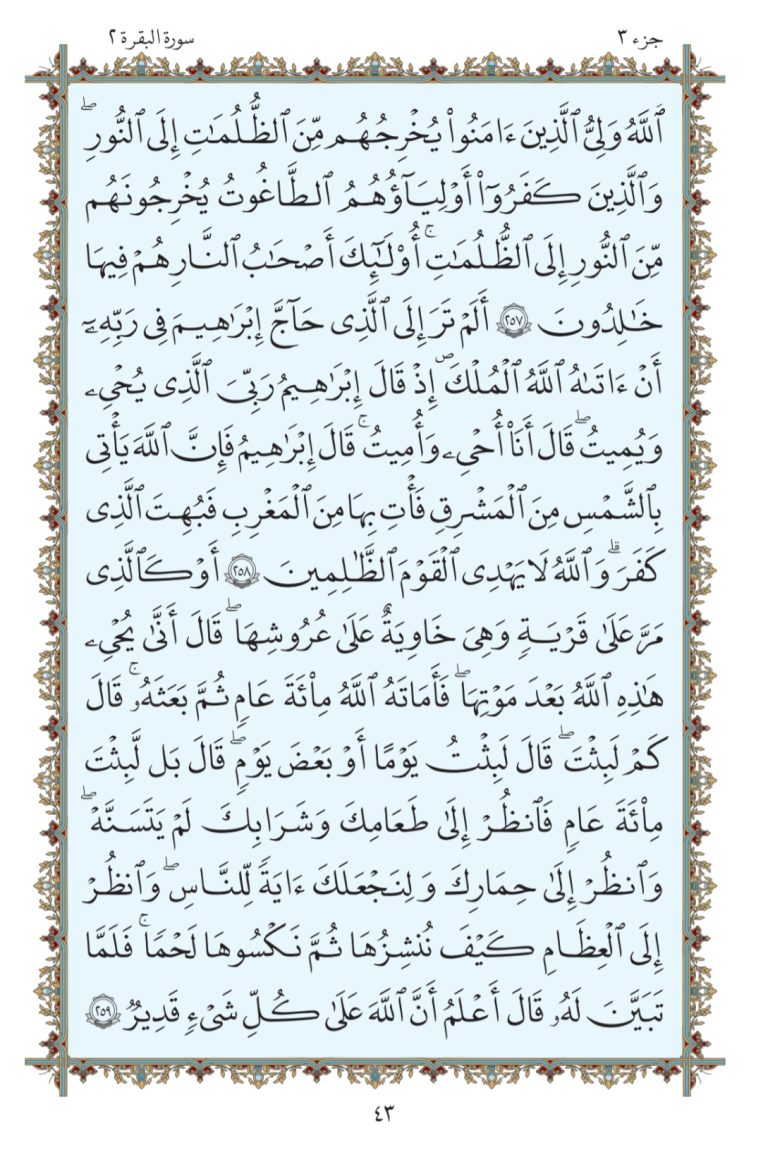 جزء ٣
سورة البقرة ٢
ٱللَّهُ وَلِىُّ ٱلَّذِينَ ءَامَنُوا۟ يُخْرِجُهُم مِّنَ ٱلظُّلُمَٰتِ إِلَى ٱلنُّورِ ۖ
وَٱلَّذِينَ كَفَرُوٓا۟ أَوْلِيَآؤُهُمُ ٱلطَّٰغُوتُ يُخْرِجُونَهُم
مِّنَ ٱلنُّورِ إِلَى ٱلظُّلُمَٰتِ ۗ أُو۟لَٰٓئِكَ أَصْحَٰبُ ٱلنَّارِ هُمْ فِيهَا
خَٰلِدُونَ ٢٥٧ أَلَمْ تَرَ إِلَى ٱلَّذِى حَآجَّ إِبْرَٰهِـۧمَ فِى رَبِّهِۦٓ
أَنْ ءَاتَىٰهُ ٱللَّهُ ٱلْمُلْكَ ۖ إِذْ قَالَ إِبْرَٰهِـۧمُ رَبِّىَ ٱلَّذِى يُحْىِۦ
وَيُمِيتُ ۖ قَالَ أَنَا۠ أُحْىِۦ وَأُمِيتُ ۚ قَالَ إِبْرَٰهِـۧمُ فَإِنَّ ٱللَّهَ يَأْتِى
بِٱلشَّمْسِ مِنَ ٱلْمَشْرِقِ فَأْتِ بِهَا مِنَ ٱلْمَغْرِبِ فَبُهِتَ ٱلَّذِى
كَفَرَ ۗ وَٱللَّهُ لَا يَهْدِى ٱلْقَوْمَ ٱلظَّٰلِمِينَ ٢٥٨ أَوْ كَٱلَّذِى
مَرَّ عَلَىٰ قَرْيَةٍ وَهِىَ خَاوِيَةٌ عَلَىٰ عُرُوشِهَا ۖ قَالَ أَنَّىٰ يُحْىِۦ
هَٰذِهِ ٱللَّهُ بَعْدَ مَوْتِهَا ۖ فَأَمَاتَهُ ٱللَّهُ مِا۟ئَةَ عَامٍ ثُمَّ بَعَثَهُۥ ۚ قَالَ
كَمْ لَبِثْتَ ۖ قَالَ لَبِثْتُ يَوْمًا أَوْ بَعْضَ يَوْمٍ ۖ قَالَ بَل لَّبِثْتَ
مِا۟ئَةَ عَامٍ فَٱنظُرْ إِلَىٰ طَعَامِكَ وَشَرَابِكَ لَمْ يَتَسَنَّهْ ۖ
وَٱنظُرْ إِلَىٰ حِمَارِكَ وَلِنَجْعَلَكَ ءَايَةً لِّلنَّاسِ ۖ وَٱنظُرْ
إِلَى ٱلْعِظَامِ كَيْفَ نُنشِزُهَا ثُمَّ نَكْسُوهَا لَحْمًا ۚ فَلَمَّا
تَبَيَّنَ لَهُۥ قَالَ أَعْلَمُ أَنَّ ٱللَّهَ عَلَىٰ كُلِّ شَىْءٍ قَدِيرٌ ٢٥٩
٤٣